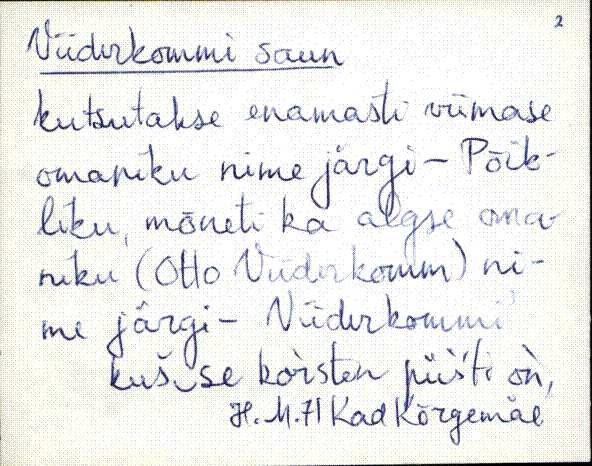 2
Viiderkommi saun
kutsutakse enamasti viimase
omaniku nime järgi – Põik-
liku, mõneti ka algse oma-
niku (Otto Viiderkomm) ni-
me järgi – Viiderkommi
kuš, se korsten püsti òn,
H. M. 71 Kad Kõrgemäe